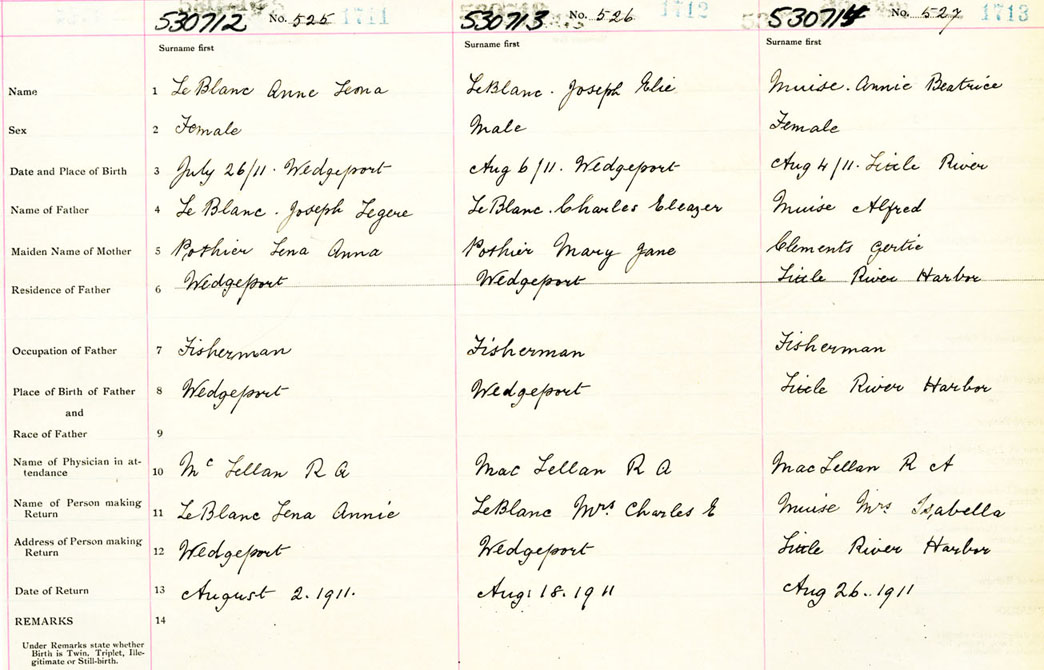 530712 No. 525 1711 530713 No. 526 1712 530714 No. 527 1713
Surname first Surname first Surname first
Name 1 LeBlanc Anne Leona LeBlanc. Joseph Elie Muise. Annie Beatrice
Sex 2 Female Male Female
Date and Place of Birth 3 July 26/11. Wedgeport Aug 6/11. Wedgeport Aug 4/11. Little River
Name of Father 4 Le Blanc. Joseph Legere LeBlanc. Charles Eleazer Muise Alfred
Maiden Name of Mother 5 Pothier Lena Anna Pothier Mary Jane Clements Gertie
Residence of Father 6 Wedgeport Wedgeport Little River Harbor
Occupation of Father 7 Fisherman Fisherman Fisherman
Place of Birth of Father 8 Wedgeport Wedgeport Little River Harbor
and
Race of Father 9
Name of Physician in at-
tendance 10 Mc Lellan R A Mac Lellan R A MacLellan R A
Name of Person making
Return 11 LeBlanc Lena Annie LeBlanc Mrs Charles E Muise Mrs Isabella
Address of Person making
Return 12 Wedgeport Wedgeport Little River Harbor
Date of Return 13 August 2. 1911. Aug. 18. 1911 Aug 26. 1911
REMARKS 14
Under Remarks state whether
Birth is Twin, Triplet, Ille-
gitimate or Still-birth.